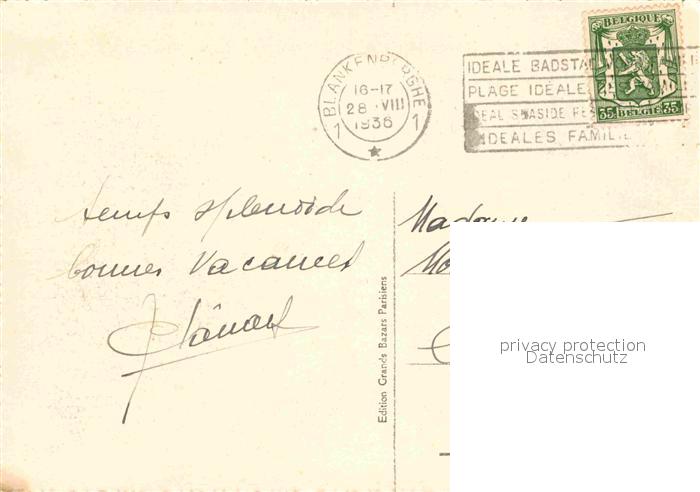 BLANKENBERGHE
16-17
28 VIII
1936
1 1
IDEALE BADSTA
PLAGE IDEALE
IDEAL SEASIDE RE
IDEALES FAMILIE
BELGIQUE
35 BELGIË 35
temps splendide
bonnes vacances
Madame
Edition Grands Bazars Parisiens
privacy protection
Datenschutz